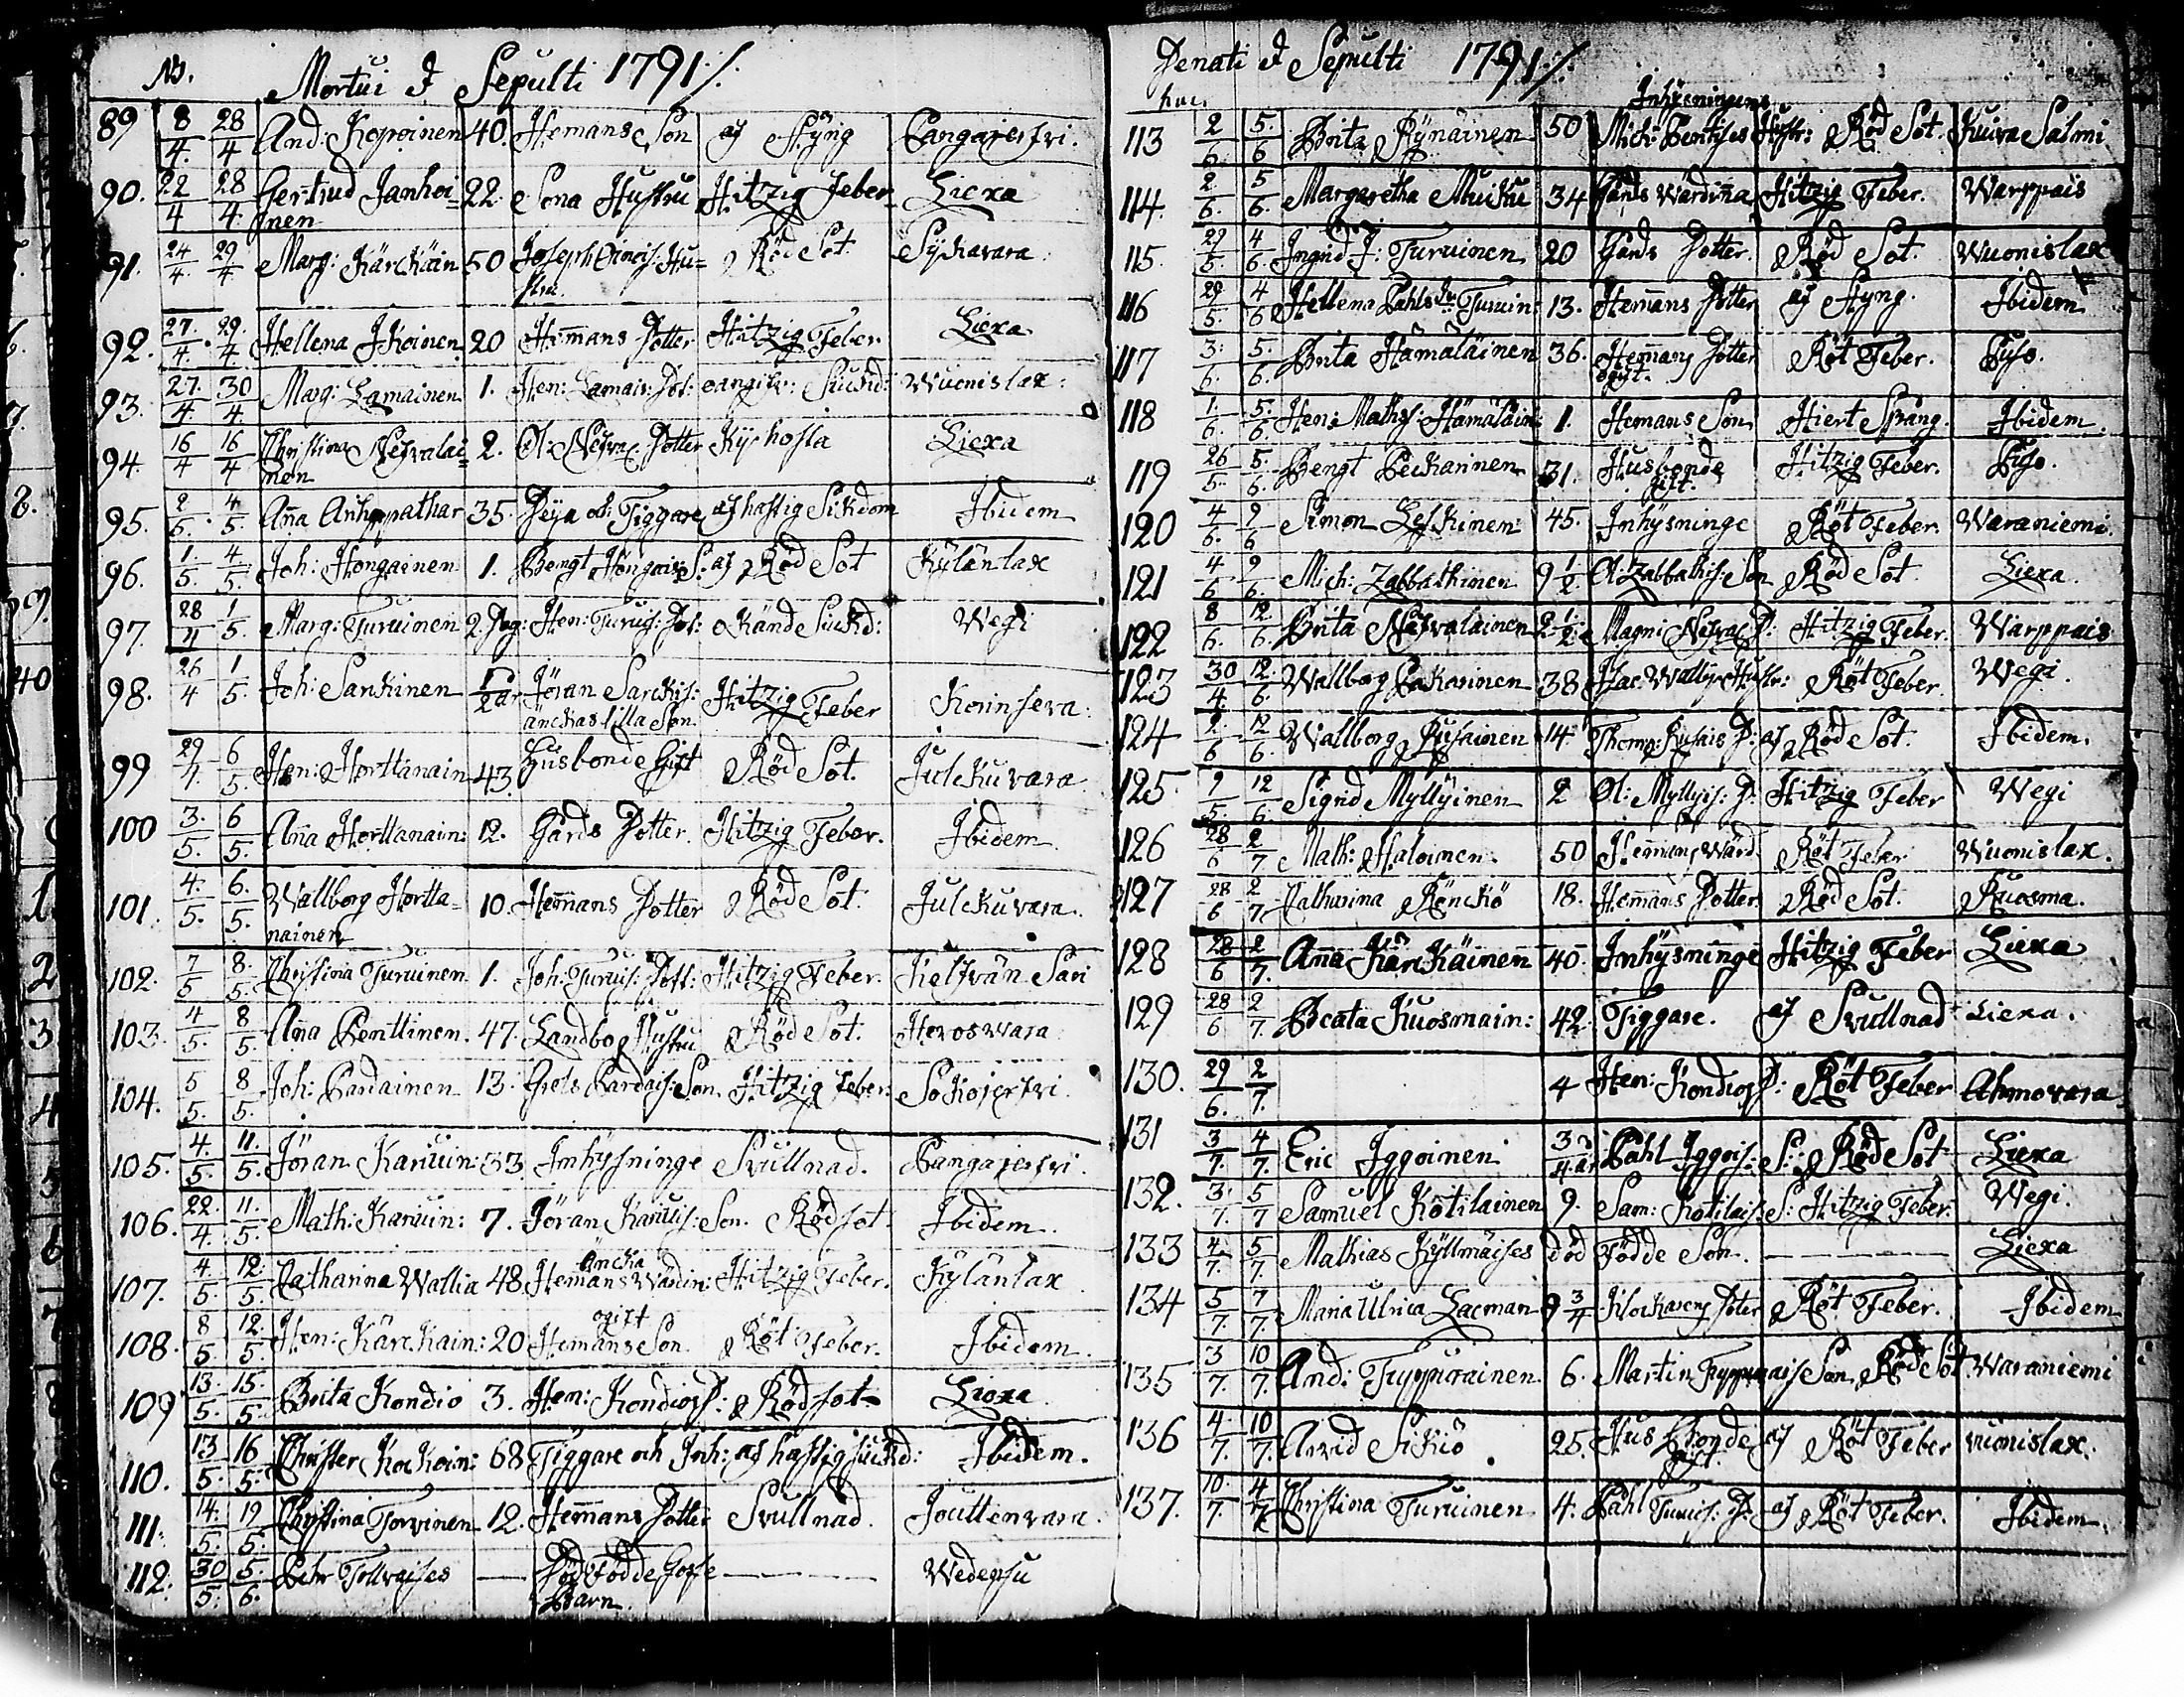 No. Mortui & Sepulti 1791./.
89 8/4. 28/4 And: Kopoinen 40. Hemans Son af Styng Pangajerfvi.
90. 22/4 28/4. Gertrud Janhoi= 22. Sona Hustru Hitzig Feber Liexa
nen
91. 24/4. 29/4 Marg: Kärckäin 50 Joseph Hu= Röd Sot Sÿkavara
stru.
92. 27./4. 29./4. Hellena Ikoinen 20 Hemans Dotter Hitzig Feber Liexa
93. 27./4. 30/4. Marg: Lamainen 1. Hen: Lamais: Dot: oangifv: Siukd: Wuonislax:
94. 16/4 16/4 Christina Nefvalai= 2. Ol: Nefva: Dotter Kÿkhosta Liexa
nen
95. 2/5. 4/5. Aña Auhppathar 35. Peÿa och Tiggare af hastig Sickdom Ibidem
96. 1./5. 4/5. Joh: Hongainen 1. Bengt Hongais: S: af Röd Sot Kÿlänlax
97. 28/4 1/5. Marg: Turuinen 2. Dag: Hen: Turuis: Dot: okänd Siukd: Wegi
98. 26/4 1/5. Joh: Sarkinen 1/2 år Jöran Sarckis: Hitzig Feber Koinsera
änckias lilla Son.
99 29/4. 6/5. Hen: Horttanain 43. Husbonde Gift Röd Sot. Julckuvara
100 3./5. 6/5. Aña Horttanain: 12. Gårds Dotter Hitzig Feber. Ibidem
101. 4./5. 6./5. Wallborg Hortta= 10. Hemans Dotter Röd Sot. Julckuvara.
nainen
102. 7/5 8./5. Christina Turuinen 1. Joh: Turuis: Dott: Hitzig Feber. Kelfvän Sari
103. 4/5. 8/5. Aña Penttinen. 47. Landbo Hustru Röd Sot. Hovoswara
104. 5/5. 8/5. Joh: Pardainen 13. Grels Pardais: Son Hitzig Feber Sokojerfvi.
105. 4./5. 11./5. Jöran Karuin: 33 Inhÿsninge Svullnad. Pangajerfvi.
106. 22./4. 11./5. Math: Karuin: 7. Jöran Karuis: Son. Röd sot. Ibidem.
Äncka
107. 4./5. 12./5. Catharina Wallia 48 Hemans Wärdin: Hitzig Feber. Kÿlänlax
ogift
108. 8/5. 12./5. Hen: Kärckain: 20 Hemans Son. Röt Feber. Ibidem.
109 13./5. 15/5. Brita Kondio 3. Hen: Kondios D: Röd sot Liexa
110. 13/5. 16/5. Christer Kockoin: 68 Tiggare och Inh: af hastig siukd: Ibidem.
111. 14./5. 19/5. Christina Torvinen 12. Hemans Dotter Svullnad. Jouttenvara.
112. 30/5. 5./6. Pehr Tollvaises — Död Födde Gosse — Wedensu
Barn.
Denati & Sepulti 1791./.
Inhÿsningens
113 2/6. 5./6 Brita Rÿnäinen 50 Mich: Penttises Hustr: Röd Sot. Kuiva Salmi
114. 2/6. 5/6. Margaretha Muiku 34 Gårds Wärdiña Hitzig Feber. Warppais
115. 29/5. 4/6 Ingrid J: Turuinen 20 Gårds Dotter. Röd Sot. Wuonislax
116 29/5. 4/6 Hellena Pahls Dr Turuin: 13. Hemans Dotter af Styng. Ibidem
117 3./6. 5./6. Brita Hämäläinen 36. Hemans Dotter Röt Feber.
ogift.
118 1./6. 5./6. Hen: Mathss: Hämäläin: 1. Hemans Son Hiert Språng. Ibidem.
119 26/5. 5./6. Bengt Peckarinen 31. Husbonde Hitzig Feber.
gift.
120 4/6. 9/6 Simon Leskinen 45. Inhÿsninge Röt Feber. Waraniemi.
121 4/6 9/6. Mich: Zabbathinen 9 1/2. Ol: Zabbathis: Son Röd Sot Liexa.
122 8/6. 12./6. Brita Nefvalainen 2 1/2 Magni Nefva: D: Hitzig Feber. Warppais
123 30/4. 12./6. Wallborg Packarinen 38 Isac Wallijs Hustr: Röt Feber. Wegi.
124 2./6 12/6. Wallborg Ruisainen 14 Thom: Ruisais D: af Röd Sot. Ibidem.
125. 9/5. 12/6. Sigrid Myllÿinen 2 Ol: Myllÿis: D: Hitzig Feber Wegi
126 28/6 2/7 Math: Haloinen. 50 Hemans Wärd Röt Feber Wuonislax.
127 28/6 2/7 Catharina Rönckö 18. Hemans Dotter. Röd Sot. Ruosma.
128 28/6 2/7. Aña Kärckäinen 40. Inhÿsninge Hitzig Feber Liexa
129 28/6 2/7. Beata Kuosmain: 42. Tiggare. af Svullnad Liexa.
130. 29/6. 2/7. 4 Hen: Kondios D: Röt Feber Ahmovara
131 3/7. 4/7. Eric Iggoinen 3/4 år Pahl Iggois: S: Röd Sot Liexa
132. 3./7. 5/7 Samuel Kotilainen 9. Sam: Kotilais: S: Hitzig Feber. Wegi.
133 4./7. 5/7. Mathias Kÿllmäises död Födde Son. — Liexa
134 5/7. 7/7. Maria Ulrica Lacman 9 3/4 Klockarens Doter Röt Feber. Ibidem
135 3/7. 10/7. And: Tryppurainen 6. Martin Tryppurais Son Röd Sot. Waraniemi
136 4/7. 10/7. Arvid Sikiö 25. Hus Bonde af Röt Feber vuonislax.
gift.
137. 10./7. 4/7 Christina Turuinen 4. Pahl Turuis: D: af Röt Feber. Ibidem.